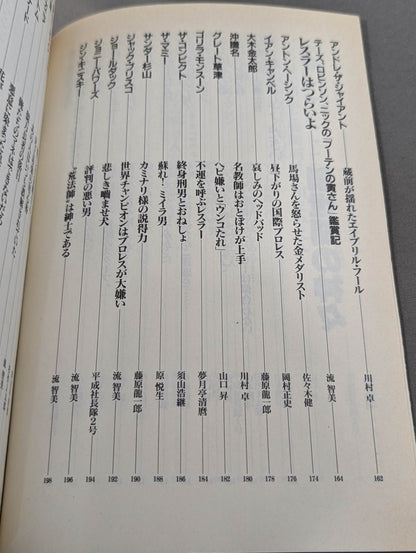 アンドレ・ザ・ジャイアント 蔵前が揺れたエイプリル・フール 川村 卓 162
テーズ、ロビンソン、ニックの「フーテンの寅さん」鑑賞記
レスラーはつらいよ 流 智美 164
アントン・ヘーシンク 馬場さんを怒らせた金メダリスト 佐々木健 174
イアン・キャンベル 昼下がりの国際プロレス 岡村正史 176
大木金太郎 哀しみのヘッドバッド 藤原龍一郎 178
沖識名 名教師はおとぼけが上手 川村 卓 180
グレート草津 ヘビ嫌いと「ウンコたれ」 山口 昇 182
ゴリラ・モンスーン 不運を呼ぶレスラー 夢月亭清麿 184
ザ・コンビクト 終身刑男とおねしょ 須山浩継 186
ザ・マミー 蘇れ!ミイラ男 原 悦生 188
サンダー杉山 カミナリ様の説得力 藤原龍一郎 190
ジャック・ブリスコ 世界チャンピオンはプロレスが大嫌い 流 智美 192
ジョールダック 悲しき噛ませ犬 平成社長隊2号 194
ジョニー・パワーズ 評判の悪い男 流 智美 196
ジン・キニスキー “荒法師”は紳士である 流 智美 198